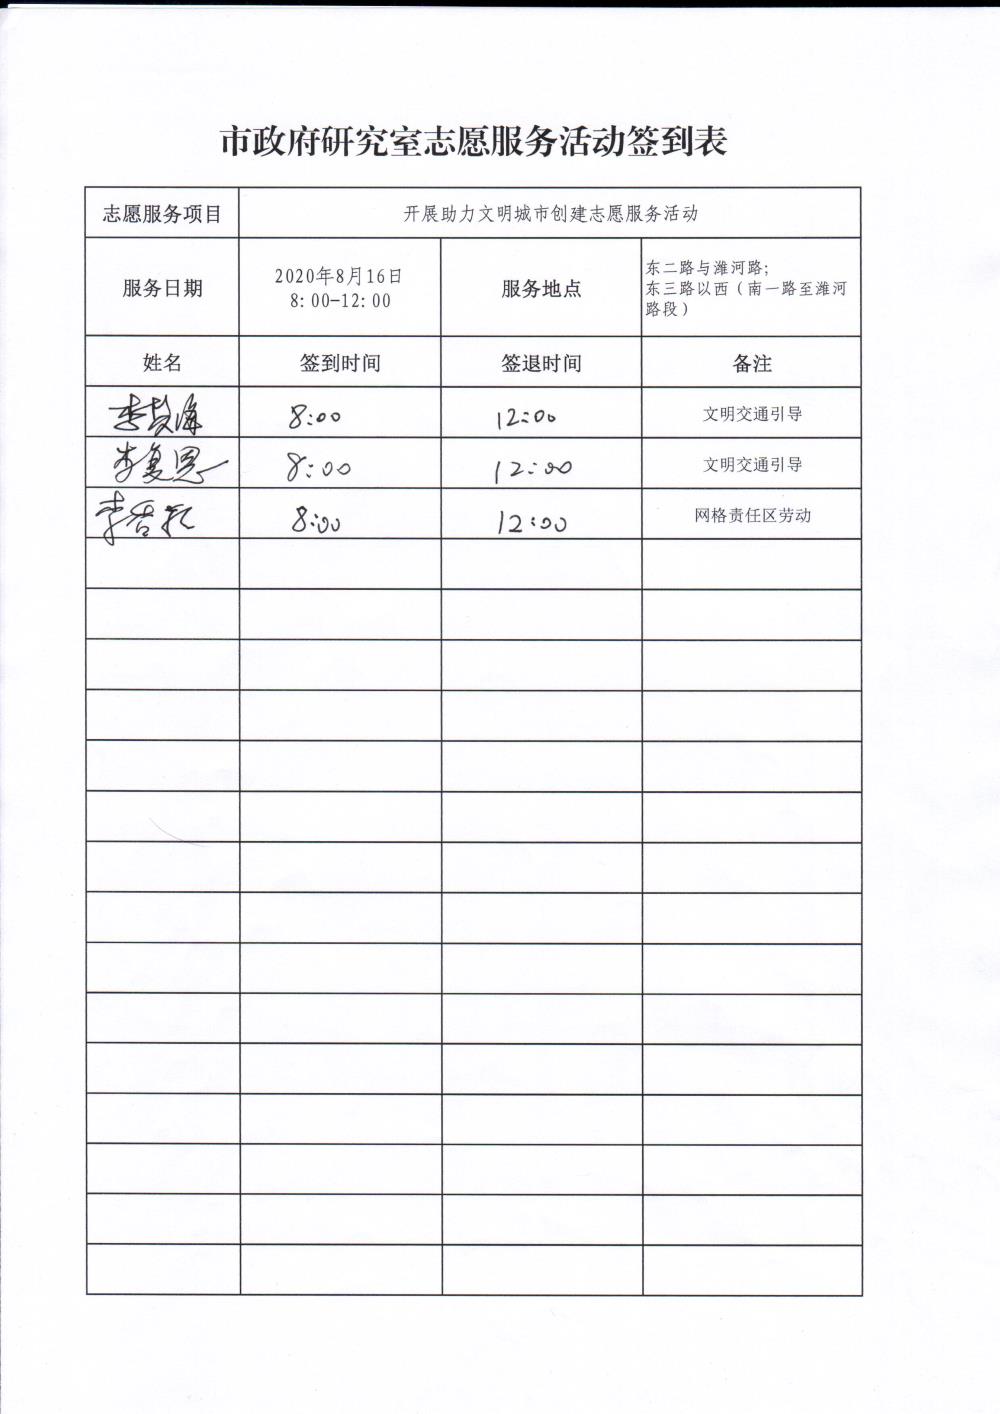 市政府研究室志愿服务活动签到表
志愿服务项目 开展助力文明城市创建志愿服务活动
服务日期 2020年8月16日 8:00-12:00 服务地点 东二路与潍河路;
东三路以西（南一路至潍河
路段）
姓名 签到时间 签退时间 备注
李 8:00 12:00 文明交通引导
李复恩 8:00 12:00 文明交通引导
李 8:00 12:00 网格责任区劳动